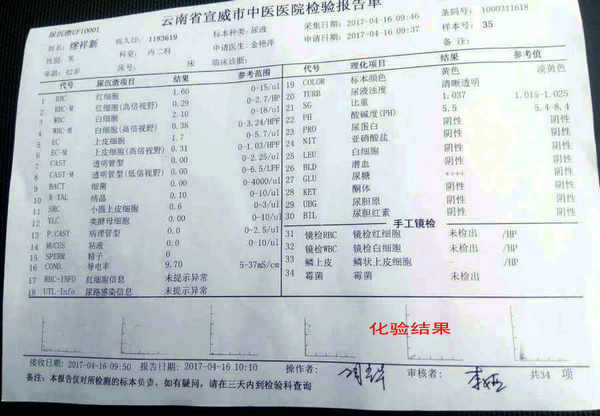 云南省宣威市中医医院检验报告单
尿沉渣UF10001
标本种类：尿液
采集日期：2017-04-16 09:46
条码号：1000311618
姓名：缪祥新
病人ID：1183619
申请医生：金艳萍
申请日期：2017-04-16 09:37
样本号：35
性别：男
科室：内二科
备注：
床号：
床号：
临床诊断：
代号 尿沉渣项目 结果 参考范围
1 RBC 红细胞 1.60 0-15/ul
2 RBC-M 红细胞(高倍视野) 0.29 0-2.7/HP
3 WBC 白细胞 2.10 0-18/ul
4 WBC-M 白细胞(高倍视野) 0.38 0-3.24/HPF
5 EC 上皮细胞 1.7 0-5.7/ul
6 EC-M 上皮细胞(高倍视野) 0.31 0-1.03/HPF
7 CAST 透明管型 0.00 0-2.25/ul
8 CAST-M 透明管型(低倍视野) 0.00 0-6.5/LPF
9 BACT 细菌 0.00 0-4000/ul
10 X-TAL 结晶 0.10 0-10/ul
11 SRC 小圆上皮细胞 0.6 0-3/ul
12 YLC 类酵母细胞 0.00 0-10/ul
13 P.CAST 病理管型 0.0 0-2.5/ul
14 MUCUS 粘液 0.0 0-10/ul
15 SPERM 精子 0
16 COND. 导电率 9.70 5-37mS/cm
17 RBC-INFO 红细胞信息 未提示异常
18 UTI-Info 尿路感染信息 未提示异常
代号 理化项目 结果 参考值
19 COLOR 标本颜色 黄色 淡黄色
20 TURB 尿液浊度 清晰透明
21 SG 比重 1.037 1.015-1.025
22 PH 酸碱度(PH) 5.5 5.4-8.4
23 PRO 尿蛋白 阴性 阴性
24 NIT 亚硝酸盐 阴性 阴性
25 LEU 白细胞 阴性 阴性
26 BLD 潜血 阴性 阴性
27 GLU 尿糖 ++++ 阴性
28 KET 酮体 阴性 阴性
29 UBG 尿胆原 阴性 阴性
30 BIL 尿胆红素 阴性 阴性
手工镜检
31 镜检RBC 镜检红细胞 未检出 /HP
32 镜检WBC 镜检白细胞 未检出 /HP
33 鳞上皮 鳞状上皮细胞 /HP
34 霉菌 霉菌 未检出
化验结果
接收日期：2017-04-16 09:50 报告日期：2017-04-16 10:10 操作者： 审核者： 共34 项
备注：本报告仅对所检测的标本负责，如有疑问，请在三天内到检验科查询